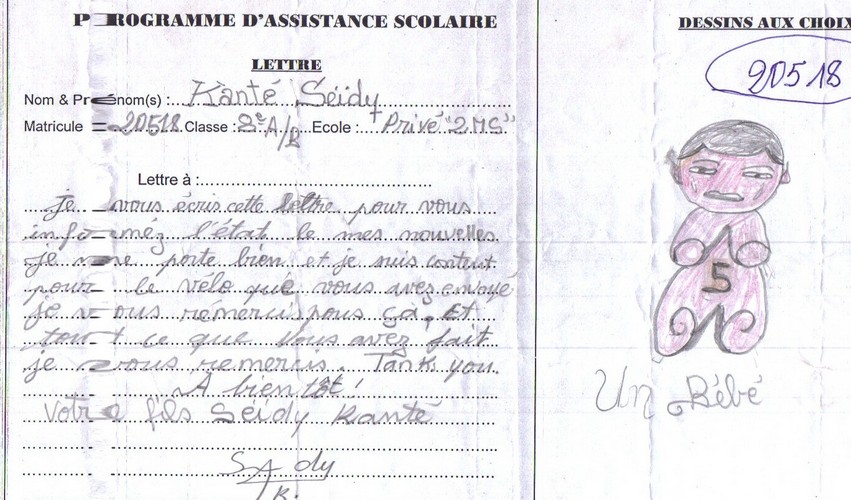 PROGRAMME D'ASSISTANCE SCOLAIRE
LETTRE
Nom & Prénom(s) : Kanté Séidy
Matricule 20518 Classe : 8e A/B Ecole : Privé "2.MS"
Lettre à :
je vous écris cette lettre pour vous
informéz l'état le mes nouvelles.
je me porte bien et je suis contint
pour le vélo que vous avez envoyé
je vous rémercis pous ça, Et
tout ce que vous avez fait
je vous remercis. Tank you.
A bien tôt !
Votre fils Séidy Kanté
DESSINS AUX CHOIX
20518
5
Un Bébé